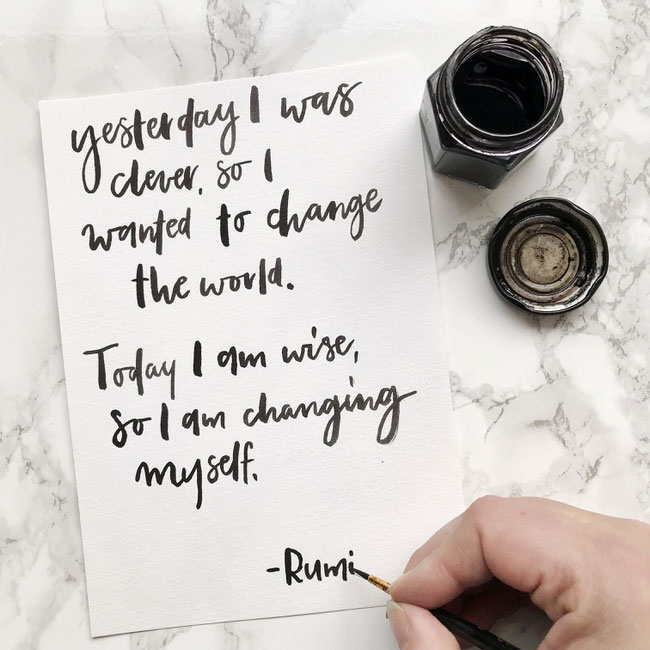 yesterday I was
clever, so I
wanted to change
the world.
Today I am wise,
so I am changing
myself.
-Rumi